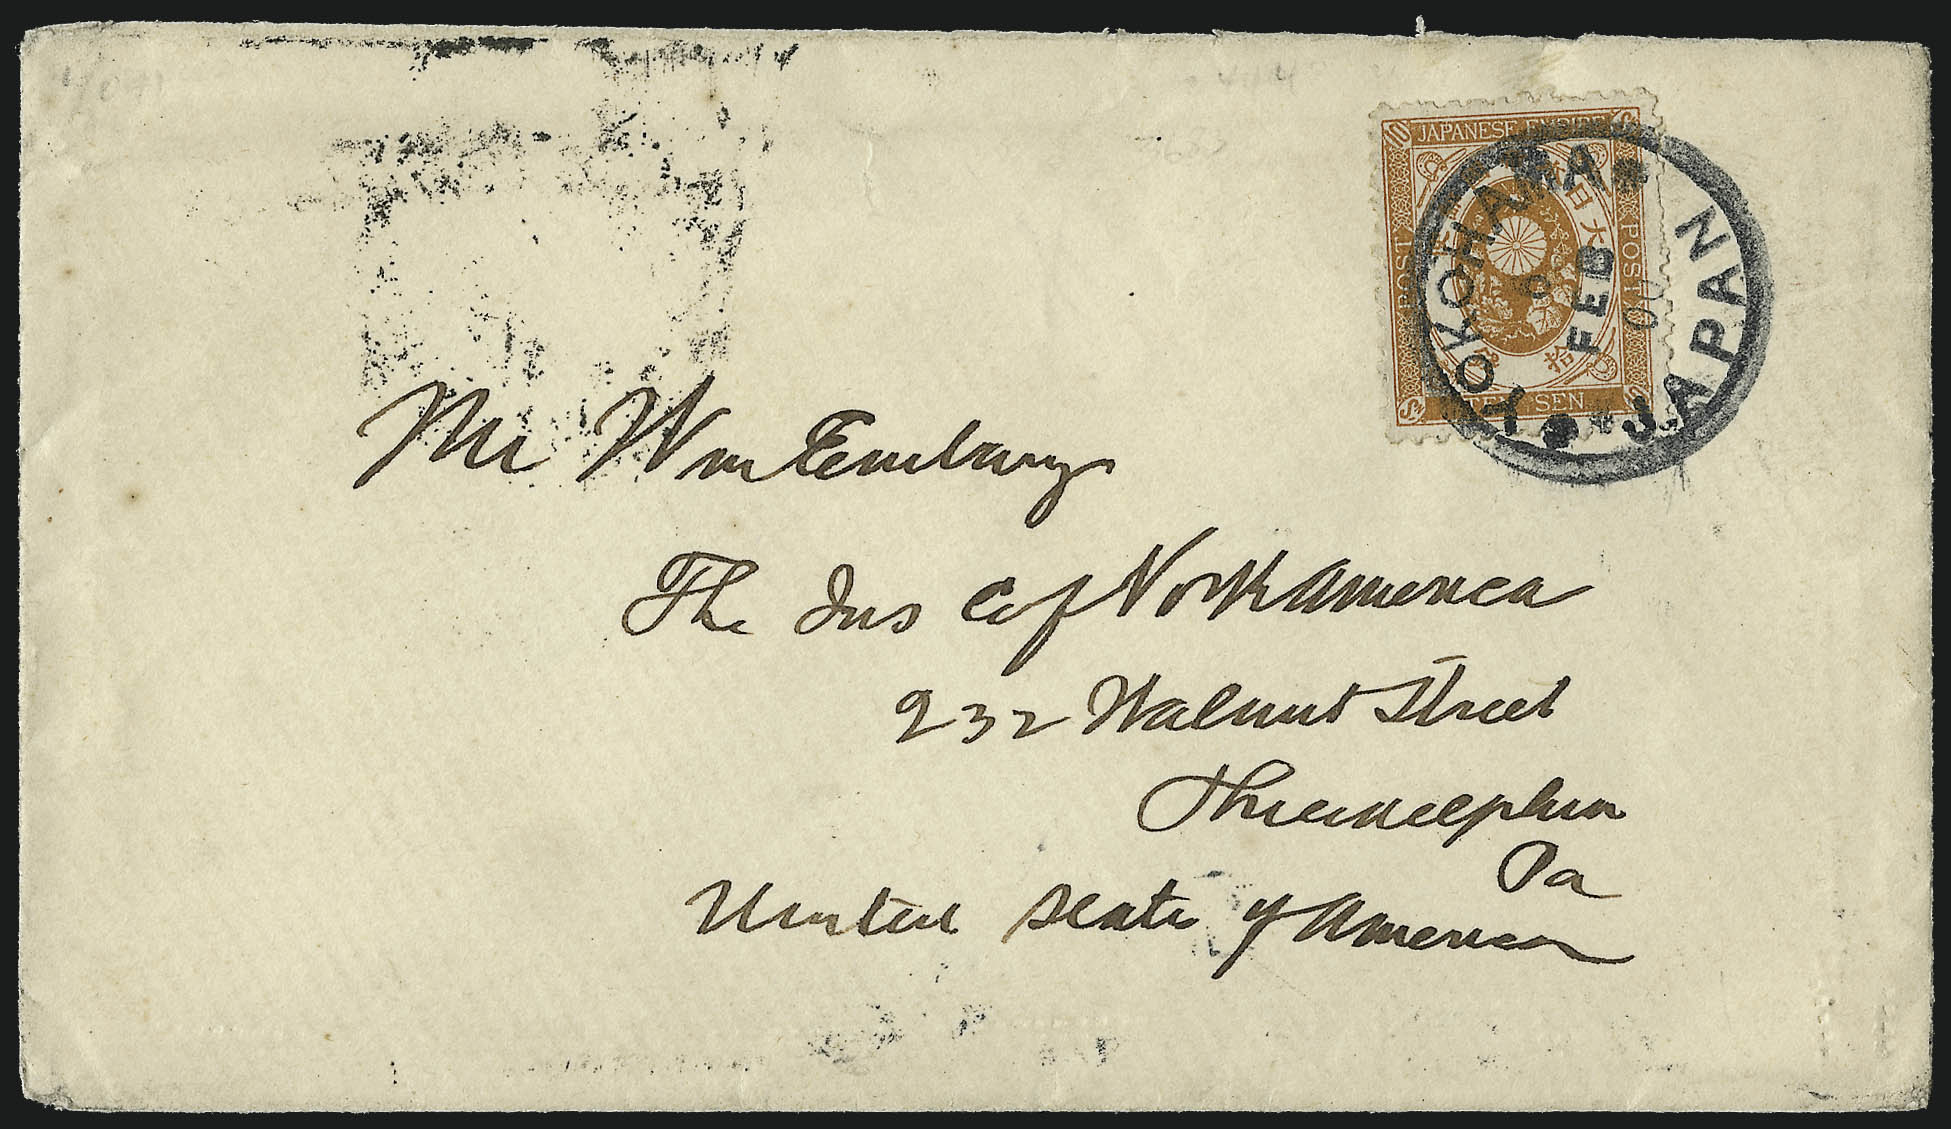 JAPANESE EMPIRE
10
POST
POST
大日
拾
TEN SEN
YOKOHAMA
JAPAN
6
FEB
00
Mr Wm Embury
The Ins Co of North America
232 Walnut Street
Philadelphia
Pa
United State of America